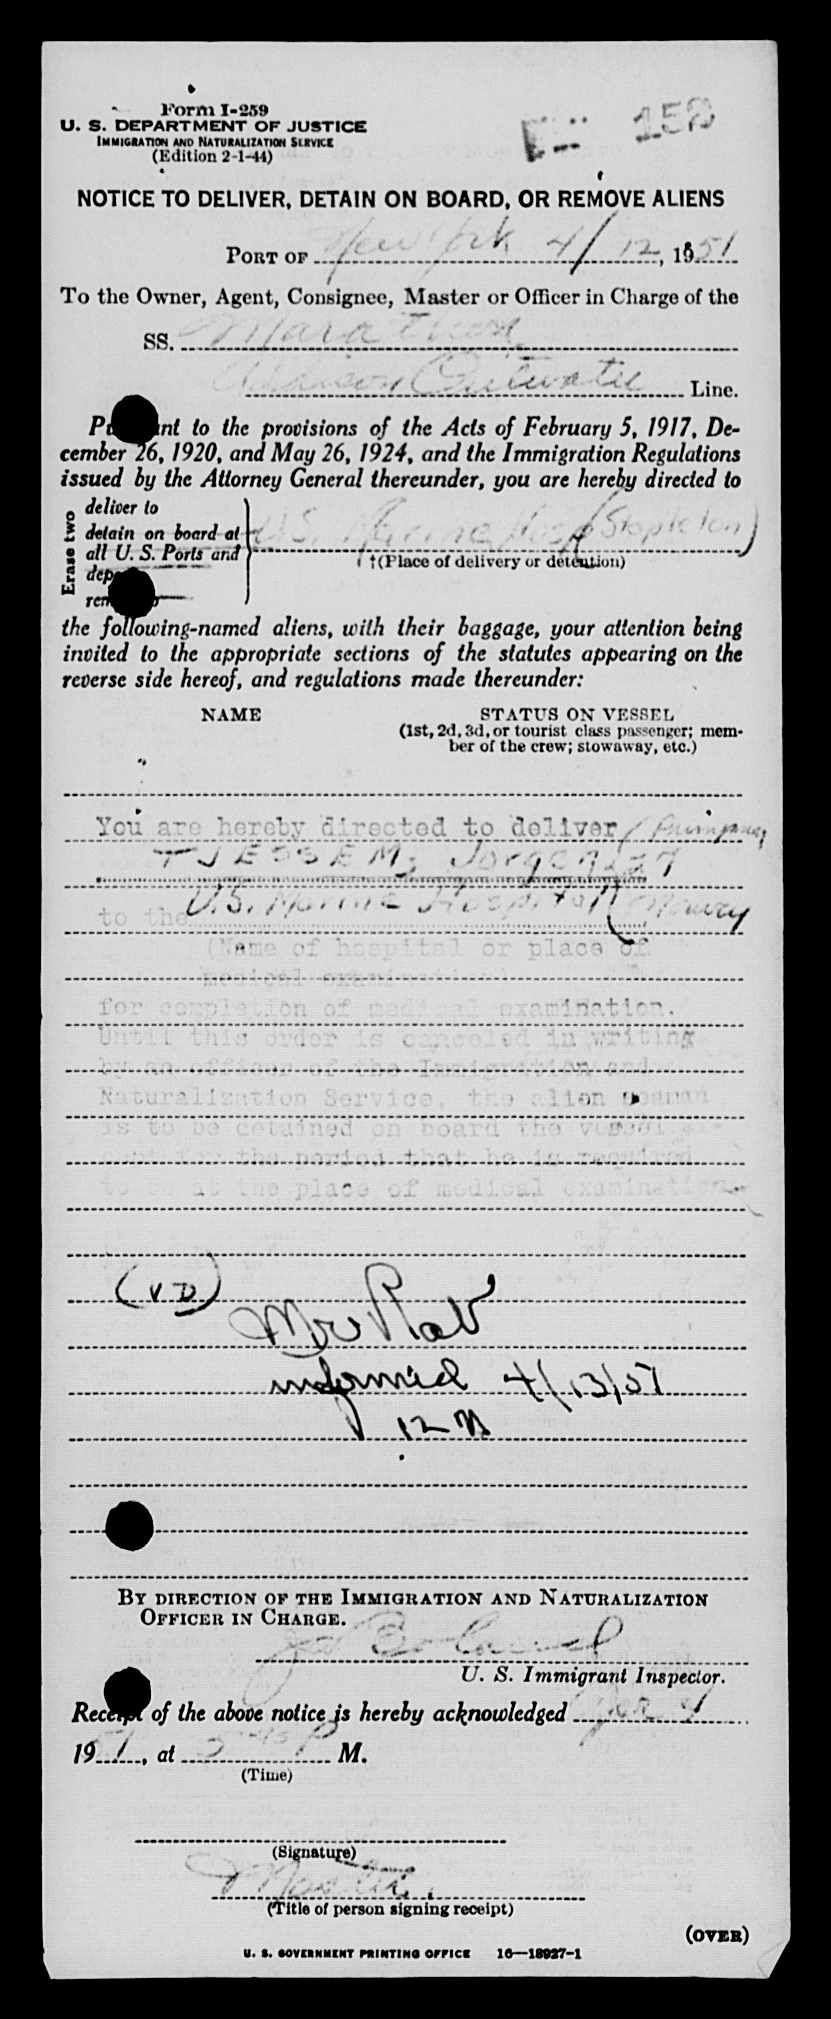 Form I-259
U. S. DEPARTMENT OF JUSTICE
IMMIGRATION AND NATURALIZATION SERVICE
(Edition 2-1-44)
158
NOTICE TO DELIVER, DETAIN ON BOARD, OR REMOVE ALIENS
PORT OF New York 4/12, 1951
To the Owner, Agent, Consignee, Master or Officer in Charge of the
SS. Mara
Line.
Pursuant to the provisions of the Acts of February 5, 1917, De-
cember 26, 1920, and May 26, 1924, and the Immigration Regulations
issued by the Attorney General thereunder, you are hereby directed to
Erase two
deliver to
detain on board at
all U. S. Ports and
U.S. Marine Hosp (Stapleton)
†(Place of delivery or detention)
the following-named aliens, with their baggage, your attention being
invited to the appropriate sections of the statutes appearing on the
reverse side hereof, and regulations made thereunder:
NAME
STATUS ON VESSEL
(1st, 2d, 3d, or tourist class passenger; mem-
ber of the crew; stowaway, etc.)
You are hereby directed to deliver
TJESSEM, Jorgen
to the U.S. Marine Hospital
(Name of hospital or place of
medical examination)
for completion of medical examination.
Until this order is canceled in writing
by an officer of the Immigration and
Naturalization Service, the alien seaman
is to be detained on board the vessel ex-
cept for the period that he is required
to be at the place of medical examination.
(VD)
Mr
informed 4/13/51
12
BY DIRECTION OF THE IMMIGRATION AND NATURALIZATION
OFFICER IN CHARGE.
U. S. Immigrant Inspector.
Receipt of the above notice is hereby acknowledged
1951, at 5 45 P M.
(Time)
(Signature)
Master
(Title of person signing receipt)
(OVER)
U. S. GOVERNMENT PRINTING OFFICE 16—18927-1